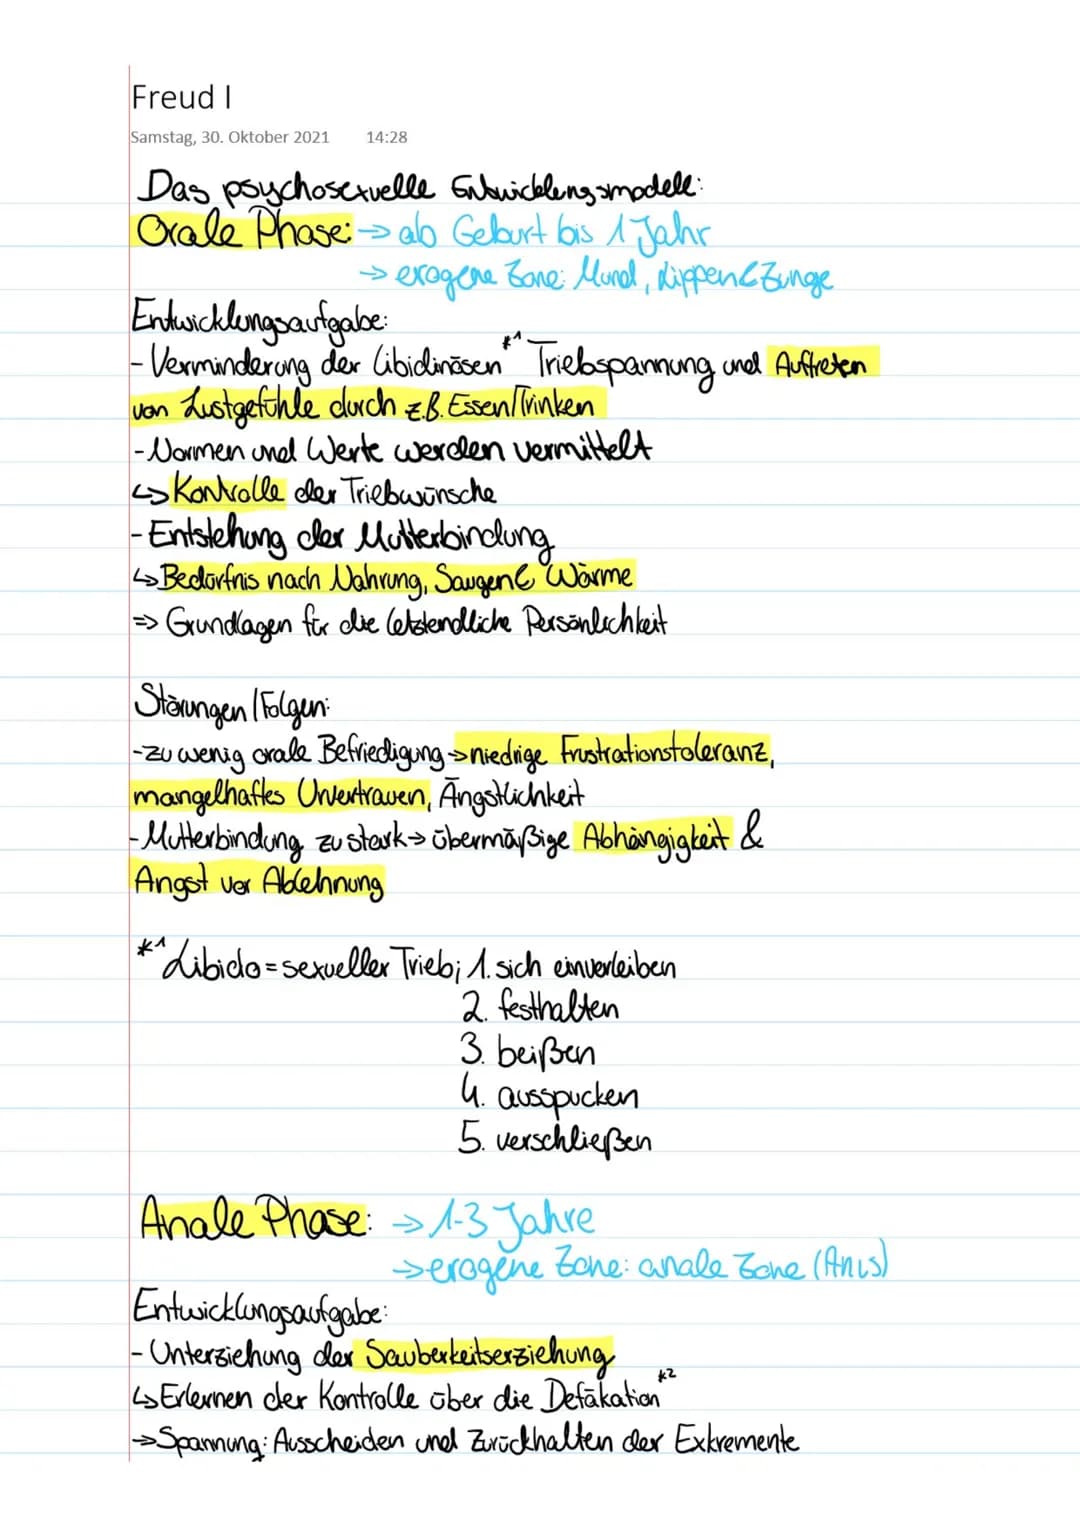 Freud I
Samstag, 30. Oktober 2021 14:28
Das psychosexuelle Entwicklungsmodell:
Orale Phase: → ab Geburt bis 1 Jahr
→ erogene Zone: Mund, Lippen & Zunge
Entwicklungsaufgabe:
- Verminderung der libidinösen*1 Triebspannung und Auftreten
von Lustgefühle durch z.B. Essen/Trinken
- Normen und Werte werden vermittelt
↳ Kontrolle der Triebwünsche
- Entstehung der Mutterbindung
↳ Bedürfnis nach Nahrung, Saugen & Wärme
=> Grundlagen für die letztendliche Persönlichkeit
Störungen/Folgen:
- zu wenig orale Befriedigung → niedrige Frustrationstoleranz,
mangelhaftes Urvertrauen, Ängstlichkeit
- Mutterbindung zu stark → übermäßige Abhängigkeit &
Angst vor Ablehnung
*1 Libido = sexueller Trieb; 1. sich einverleiben
2. festhalten
3. beißen
4. ausspucken
5. verschließen
Anale Phase: → 1-3 Jahre
→ erogene Zone: anale Zone (Anus)
Entwicklungsaufgabe:
- Unterziehung der Sauberkeitserziehung
↳ Erlernen der Kontrolle über die Defäkation*2
→ Spannung: Ausscheiden und Zurückhalten der Exkremente